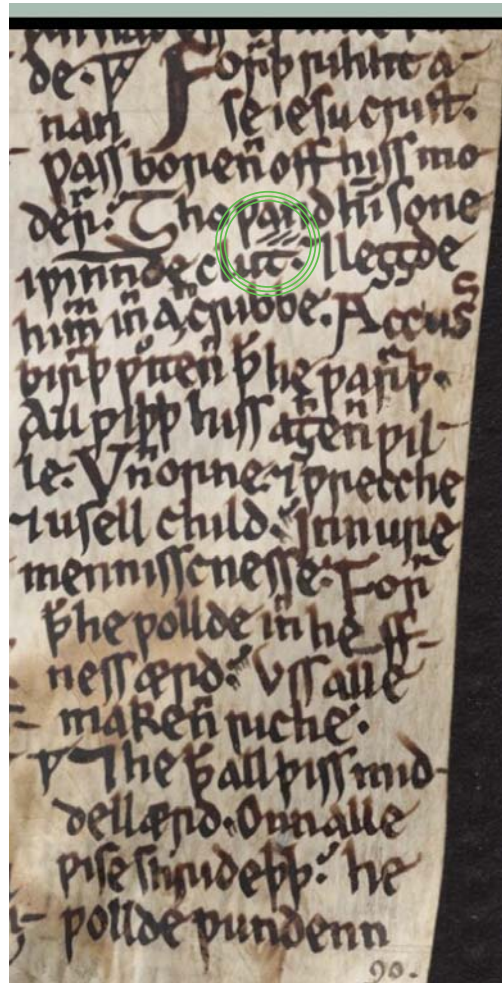 de. Forrþrihht a-
nan se iesu crist.
wass borenn off hiss mo
derr. Tho wand himm sone
i winnde clut. ⁊ leȝȝde
himm inn an cribbe. Acc uss
birrþ witenn ꝥ he warrþ.
All wiþþ hiss aȝhenn wil
le. Vnnorne. ⁊ wrecche
⁊ usell child. Inn ure
mennisscnesse. Forr
ꝥ he wollde inn heff-
ness ærd. Vss alle
makenn riche.
⁊ he ꝥ all þiss mid-
dellærd. Onn alle
wise he
wollde wundenn
90.